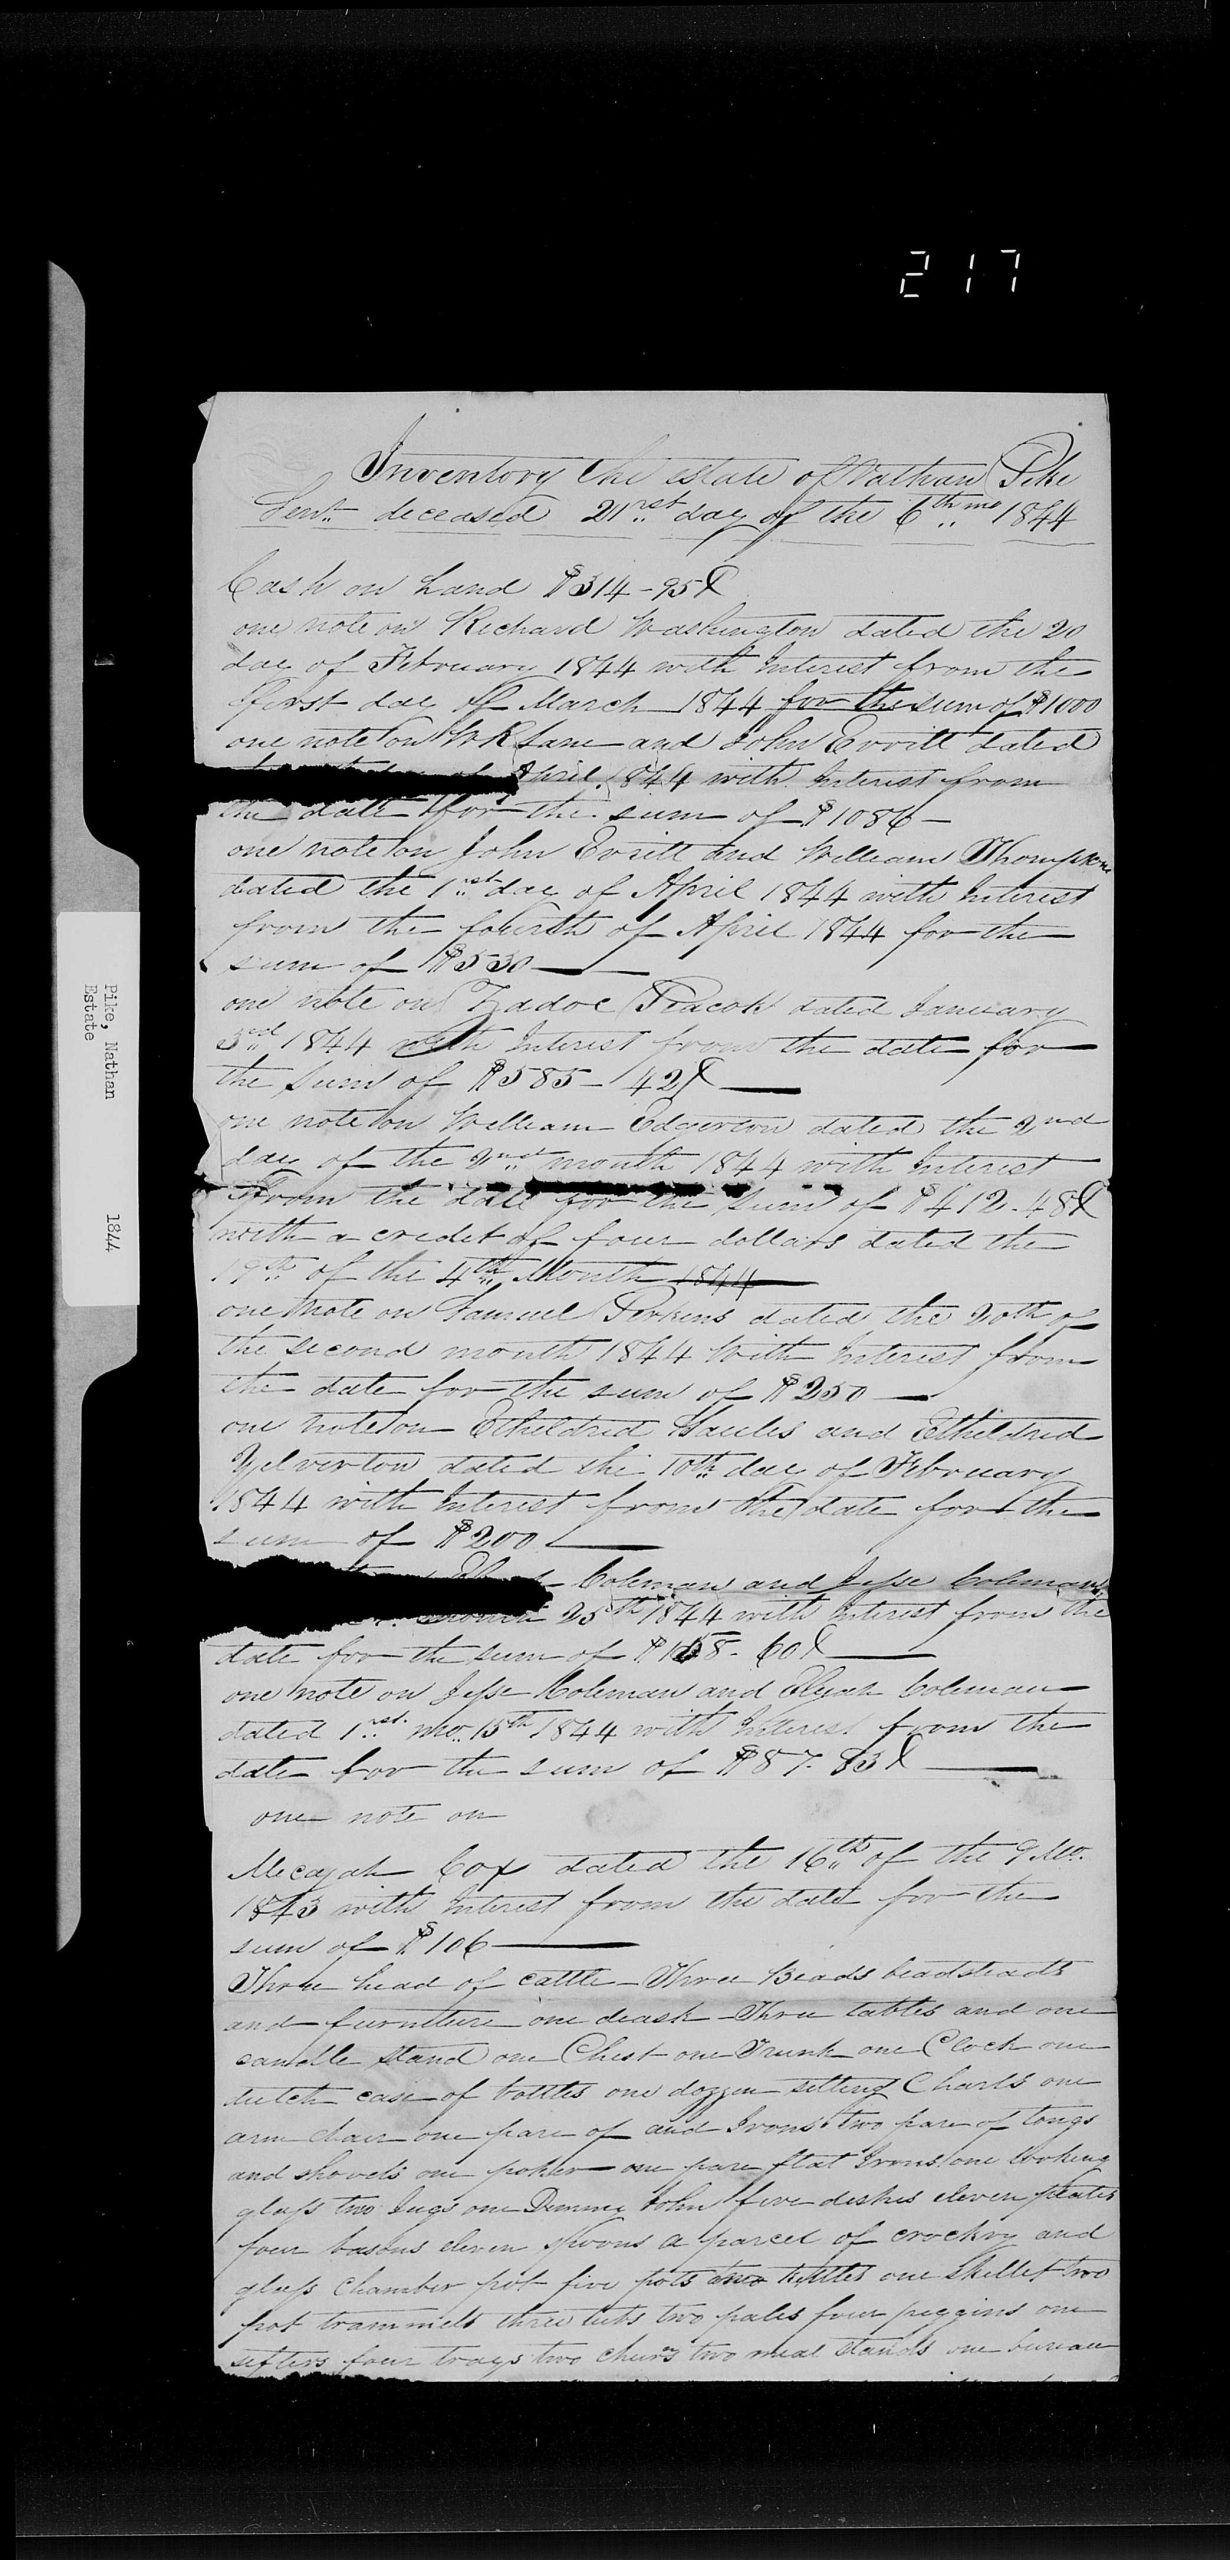 217
Pike, Nathan 1844
Estate
Inventory the estate of Nathan Pike
Senr deceased 21rst day of the 6th mo 1844
Cash on hand $314-95
one note on Richard Washington dated the 20
day of February 1844 with Interest from the
first day of March 1844 for the sum of $1000
one note on W K Lane and John Evritt dated
April 1844 with Interest from
the date for the sum of $1086
one note on John Evritt and William Thompson
dated the 1rst day of April 1844 with Interest
from the fourth of April 1844 for the
sum of $530
one note on Zadoc Peacok dated January
3rd 1844 with Interest from the date for
the sum of $585-42
one note on William Edgerton dated the 2nd
day of the month 1844 with Interest
From the date for the sum of $412-48
with a credit of four dollars dated the
19th of the 4th Month 1844
one note on Samuel Perkins dated the 20th of
the second month 1844 With Interest from
the date for the sum of $250
one note on Etheldred Sauls and Etheldred
Yelverton dated the 10th day of February
1844 with Interest from the date for the
sum of $200
Coleman and Jesse Coleman
25th 1844 with Interest from the
date for the sum of 60
one note on Jesse Coleman and Elijah Coleman
dated 1rst mo 15th 1844 with Interest from the
date for the sum of $87-83
one note on
Mecajah Cox dated the 16th of the 9 Mo.
1843 with Interest from the date for the
sum of $106
Three head of cattle Three Beads beadsteads
and furniture one deask Three tables and one
candle stand one Chest one Trunk one Clock one
dutch case of bottles one dozzen setting Chairs one
arm chair one pare of and Irons two pare of tongs
and shovels one poker one pare flat Irons one looking
glass two Jugs one Demmy John five dishes eleven plates
four basons eleven spoons a parcel of crockry and
glass Chamber pot five pots two kettles one skillet two
pot trammels three tubs two pales four peggins one
sifters four trays two churs two meal stands one bureau